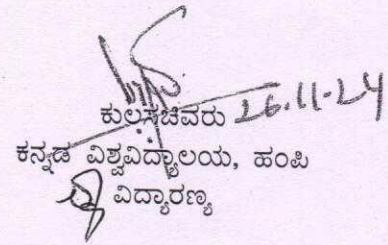 ಕುಲಸಚಿವರು 26.11-24
ಕನ್ನಡ ವಿಶ್ವವಿದ್ಯಾಲಯ, ಹಂಪಿ
ವಿದ್ಯಾರಣ್ಯ